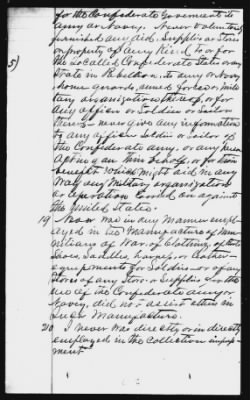 for the Confederate Goverment to
any or Navy. Never voluntarily
furnished any aid. Supplies or Stores
or property of any Kind to or for
5) the so called Confederate States or any
State in Rebellion, to any or Navy
home guards, armed forces or milit
ary organizations thereof, or for
any officer or Soldier or Sailor
never gave any information
to any officer Soldier or Sailor of
the Confederate army. or any
on his behalf, or for his
benefit which might aid in any
Way any Military organization
or operation Carried on against
the United States.
19 Never was in any Manner empl-
oyed in the Manufacture of Mun-
itions of War, of Clothing, of Boots
Shoes, Saddles, harness, or leather
equipments for Soldiers or of any
Stores of any Stores or Supplies for the
use of the Confederate army or
Navy, did not assist others in
Such Manufacture.
20 I never was directly or indirectly
employed in the Collection
ment